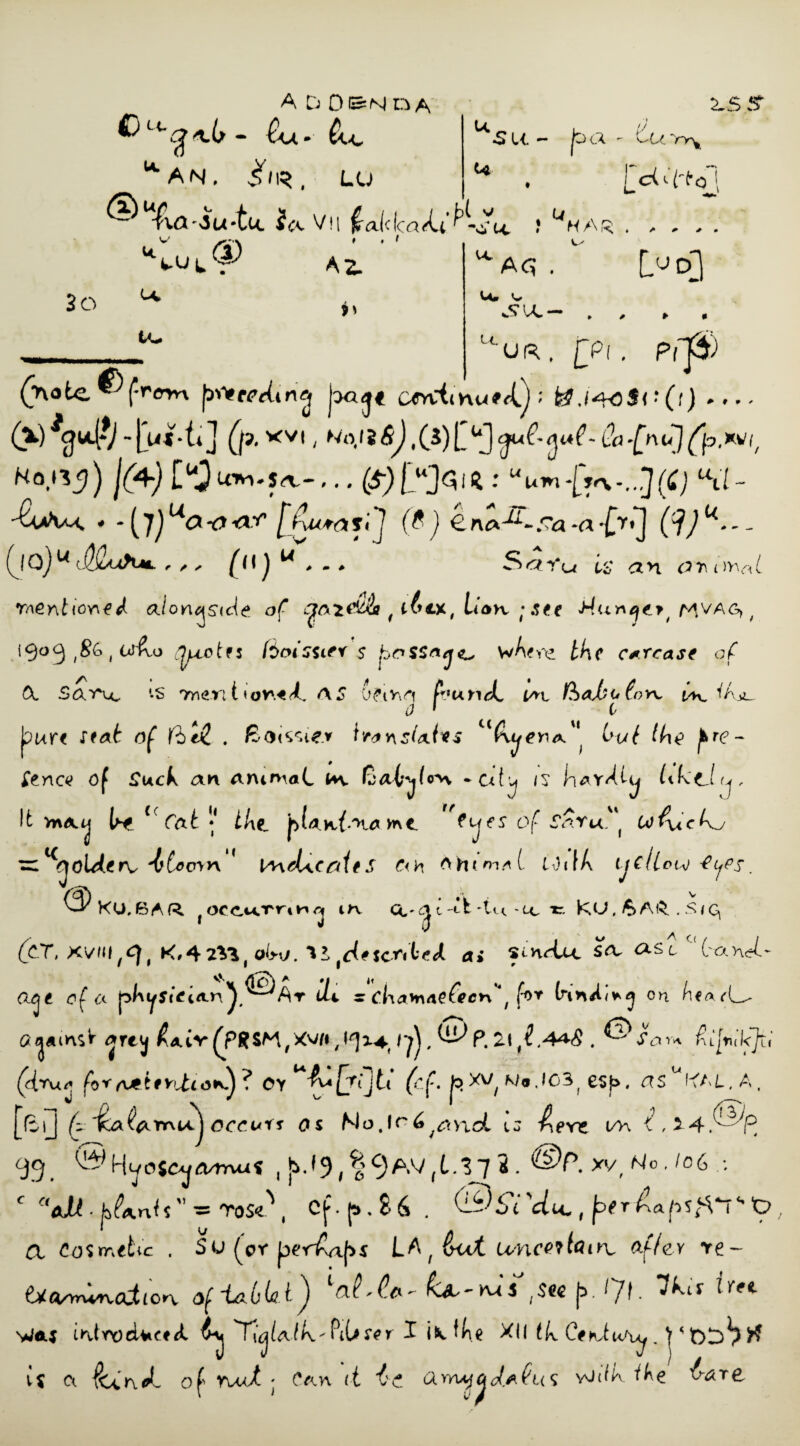 ADDENDA 255
① ᵘgab - lu - lu ᵘšu - pa - lum
ᵘ AN. ŠIR, LU ᵘ . [ditto]
② ᵘḫa-šu-tu ša VII šakkadi ᵖˡ-šu : ᵘḪAR . . . . .
ᵘLUL ③ AZ ᵘ AG . [UD]
30 ᵘ " ᵘ ŠU - . . . .
ᵘ ᵘ UR. [PI. PI] ④
(note ④ from preceding page continued) :
(p. XVI, No. 128), (3) [ᵘ] gul-gul-la-[nu] (p. XVI,
No. 129) (4) [ᵘ] um-ša-... (5) [ᵘ]GIR : ᵘum-[ša-...] (6) ᵘil-
(7) ᵘa-a-ar [ḫurasi] (8)
(10) ᵘ ... (11) ᵘ ... Sâru is an animal
mentioned alongside of gazelle, ibex, lion ; see Hunger, MVAG,
1909, 86, who quotes Boissier's passage where the carcase of
a sâru is mentioned as being found in Babylon in the
pure seat of Bêl . Boissier translates "hyena", but the pre-
sence of such an animal in Babylon - city is hardly likely.
It may be "cat": the plant-name "eyes of sâru", which
= "golden bloom" indicates an animal with yellow eyes.
⑨ KU.BAR, occurring in a-gi-it-tu-u = KU.BAR.SIG
(CT. XVIII, 9, K. 4233, obv. 12, described as sindu ša asî "band-
age of a physician"). ⑩ Ar ili = "chamaeleon", for binding on head
against grey hair (PRSM, XVII, 1924, 17). ⑪ P. 21, l. 448 .
(drug for retention) ? or (cf. p. XV, No. 103, esp. as ᵘKAL.A.
[BI] (= kalamu) occurs as No. 106, and is here in l. 24. ⑬ P.
99. ⑭ Hyoscyamus, p. 19, § 9 AV, l. 372. ⑮ P. XV, No. 106 :
"all - plants" = "rose", cf. p. 86 . ⑯ Si'du, perhaps
a cosmetic . ŠU (or perhaps LA, but uncertain after re-
examination of tablet) , see p. 171. This tree
was introduced by Tiglath-Pileser I in the XII th Century.
is a kind of nut ; can it be amygdalus with the bare